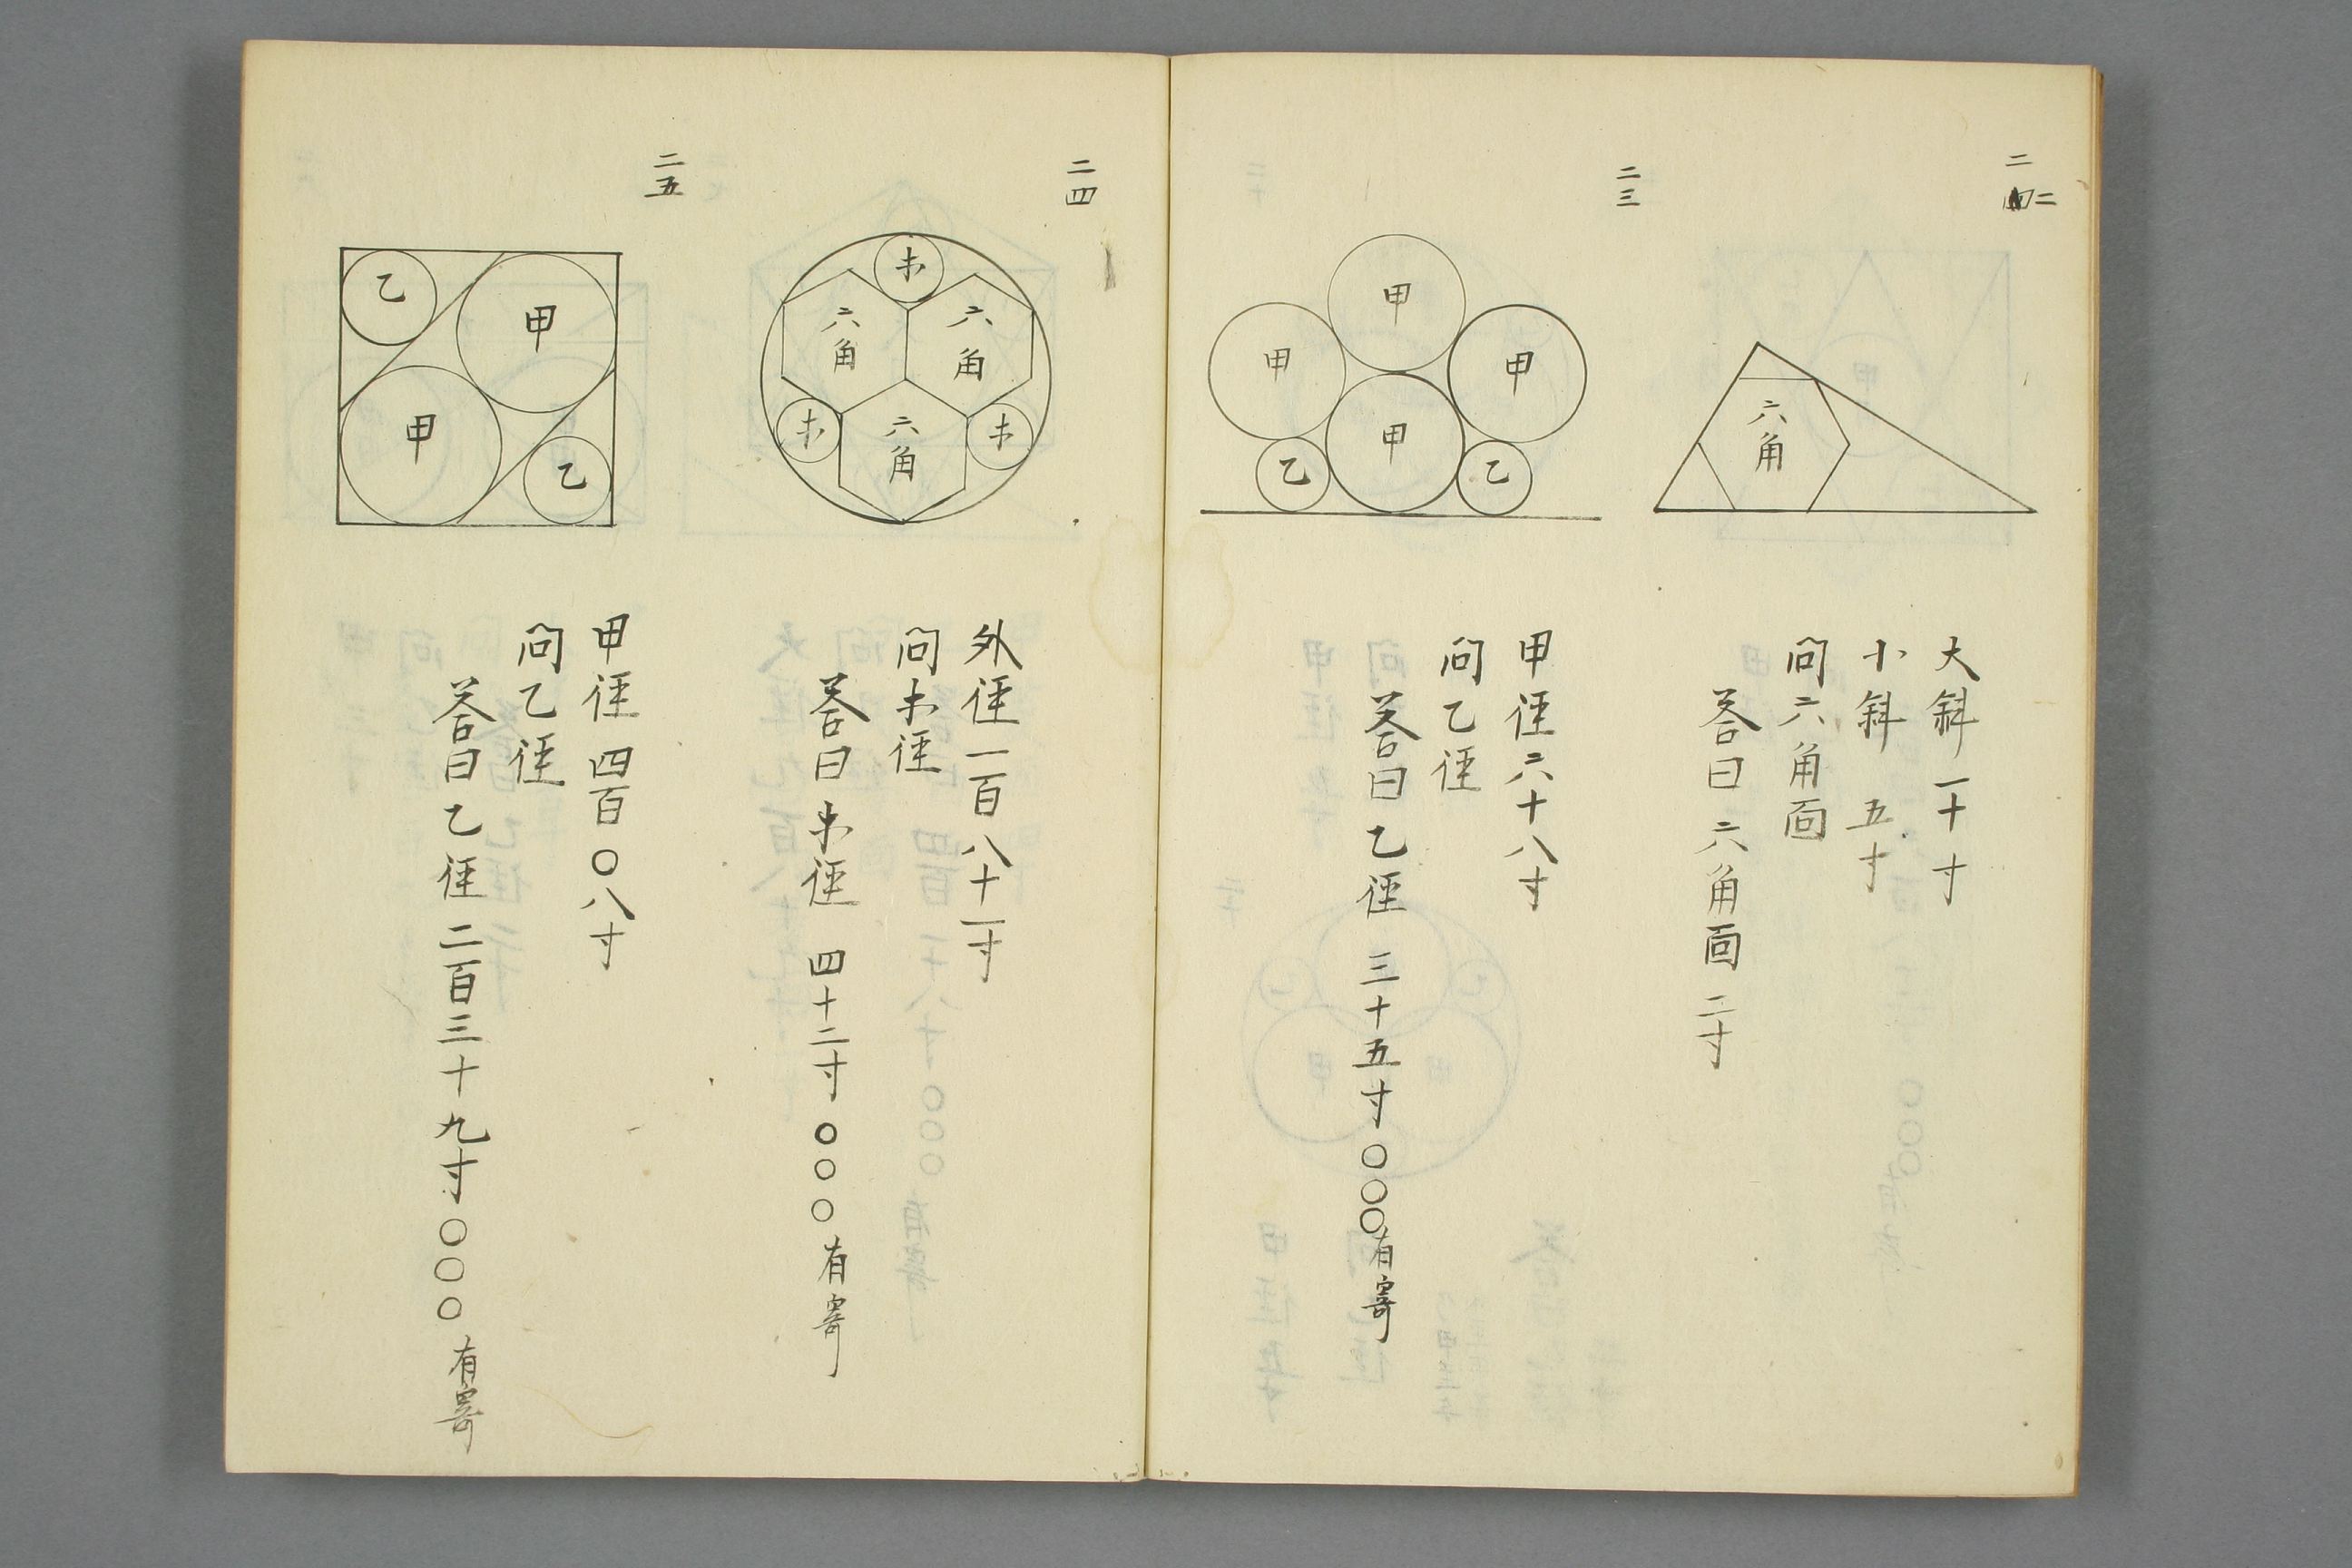 二二
六角
大斜一十寸
小斜 五寸
問六角面
答曰六角面二寸
二三
甲
甲
甲
甲
乙
乙
甲径六十八寸
問乙径
答曰乙径三十五寸〇〇〇有寄
二四
六角
六角
六角
外径一百八十一寸
答曰
四十二寸〇〇〇有寄
二五
乙
甲
甲
乙
甲径四百〇八寸
問乙径
答曰乙径二百三十九寸〇〇〇有寄